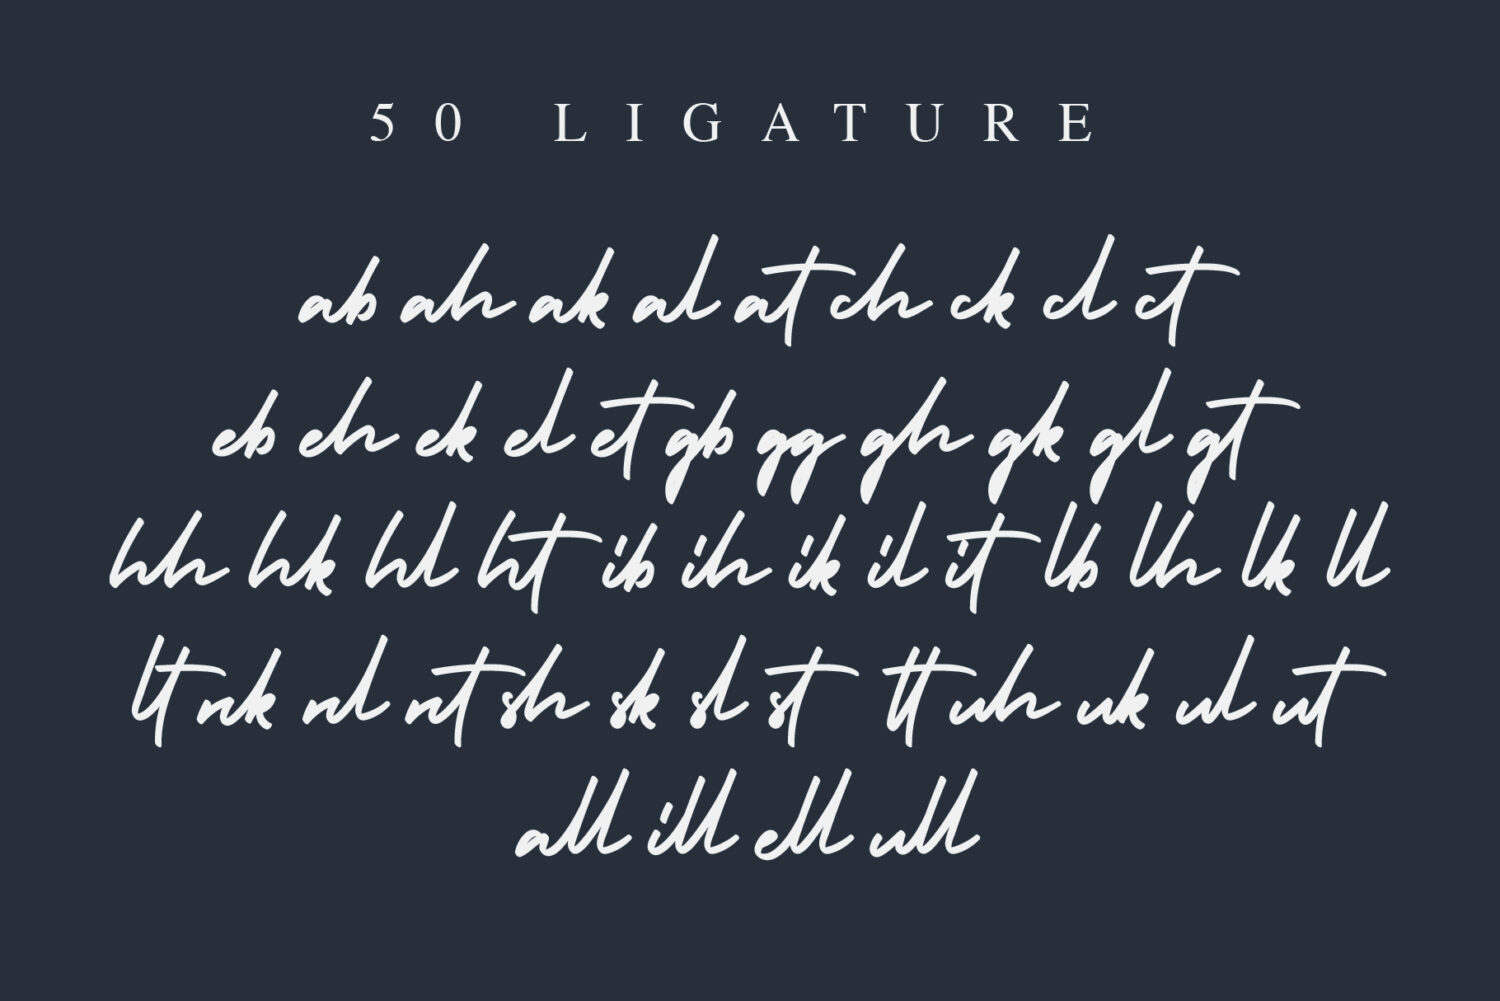 50 LIGATURE
ab ah ak al at ch ck cl ct
eb eh ek el et gb gg gh gk gl gt
hh hk hl ht ib ih ik il it lb lh lk ll
lt nk nl nt sh sk sl st tt uh uk ul ut
all ill ell ull